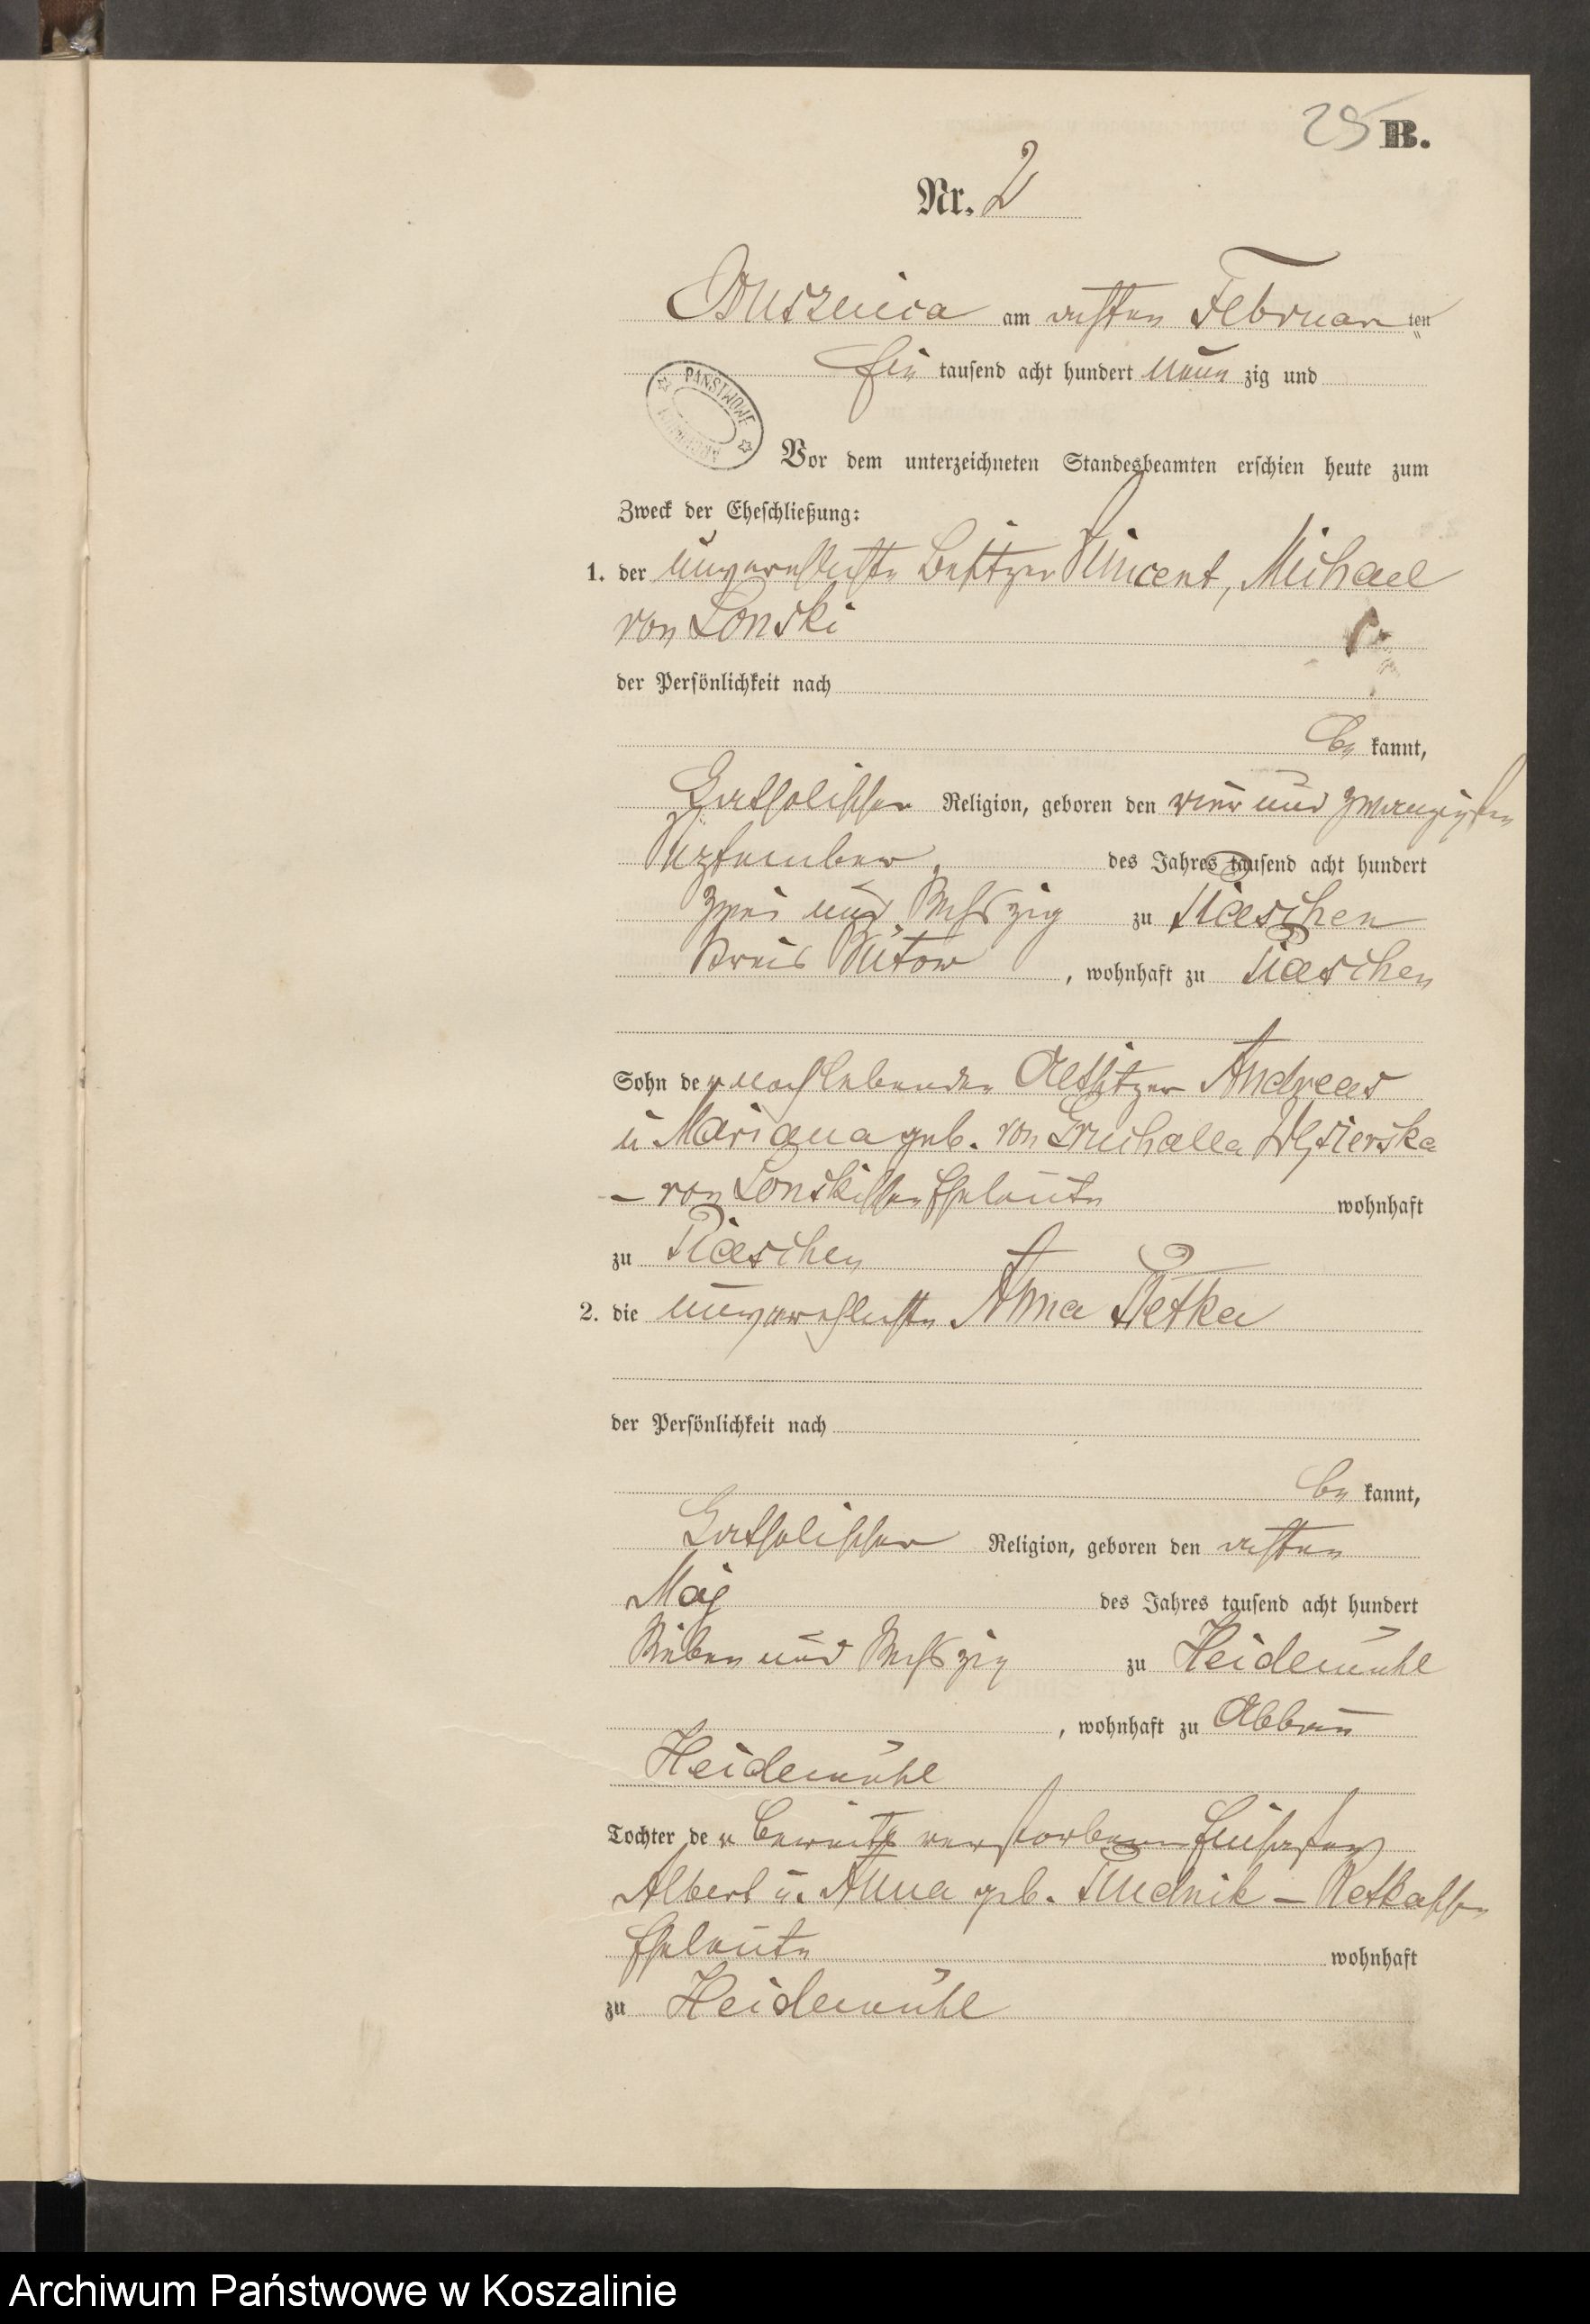 25 B.
Nr. 2
Buszenica am ersten Februar ten
Ein tausend acht hundert neun zig und
PAŃSTWOWE
Vor dem unterzeichneten Standesbeamten erschien heute zum
Zweck der Eheschließung:
1. der unverehlichte Besitzer Vincent, Michael
von Lonski
der Persönlichkeit nach
be kannt,
Katholischer Religion, geboren den vier und zwanzigsten
September des Jahres tausend acht hundert
zwei und sechszig zu Piaschen
Kreis Bütow, wohnhaft zu Piaschen
Sohn der noch lebenden Altsitzer Andreas
u Mariana geb. von Gruchalla Węsierska
– von Lonskischen Eheleute wohnhaft
zu Piaschen
2. die unverehlichte Anna Petka
der Persönlichkeit nach
be kannt,
Katholischer Religion, geboren den ersten
Maj des Jahres tausend acht hundert
sieben und sechszig zu Heidemühl
, wohnhaft zu Abbau
Heidemühl
Tochter der bereits verstorbenen
Albert u. Anna geb. – Petkaschen
Eheleute wohnhaft
zu Heidemühl
Archiwum Państwowe w Koszalinie